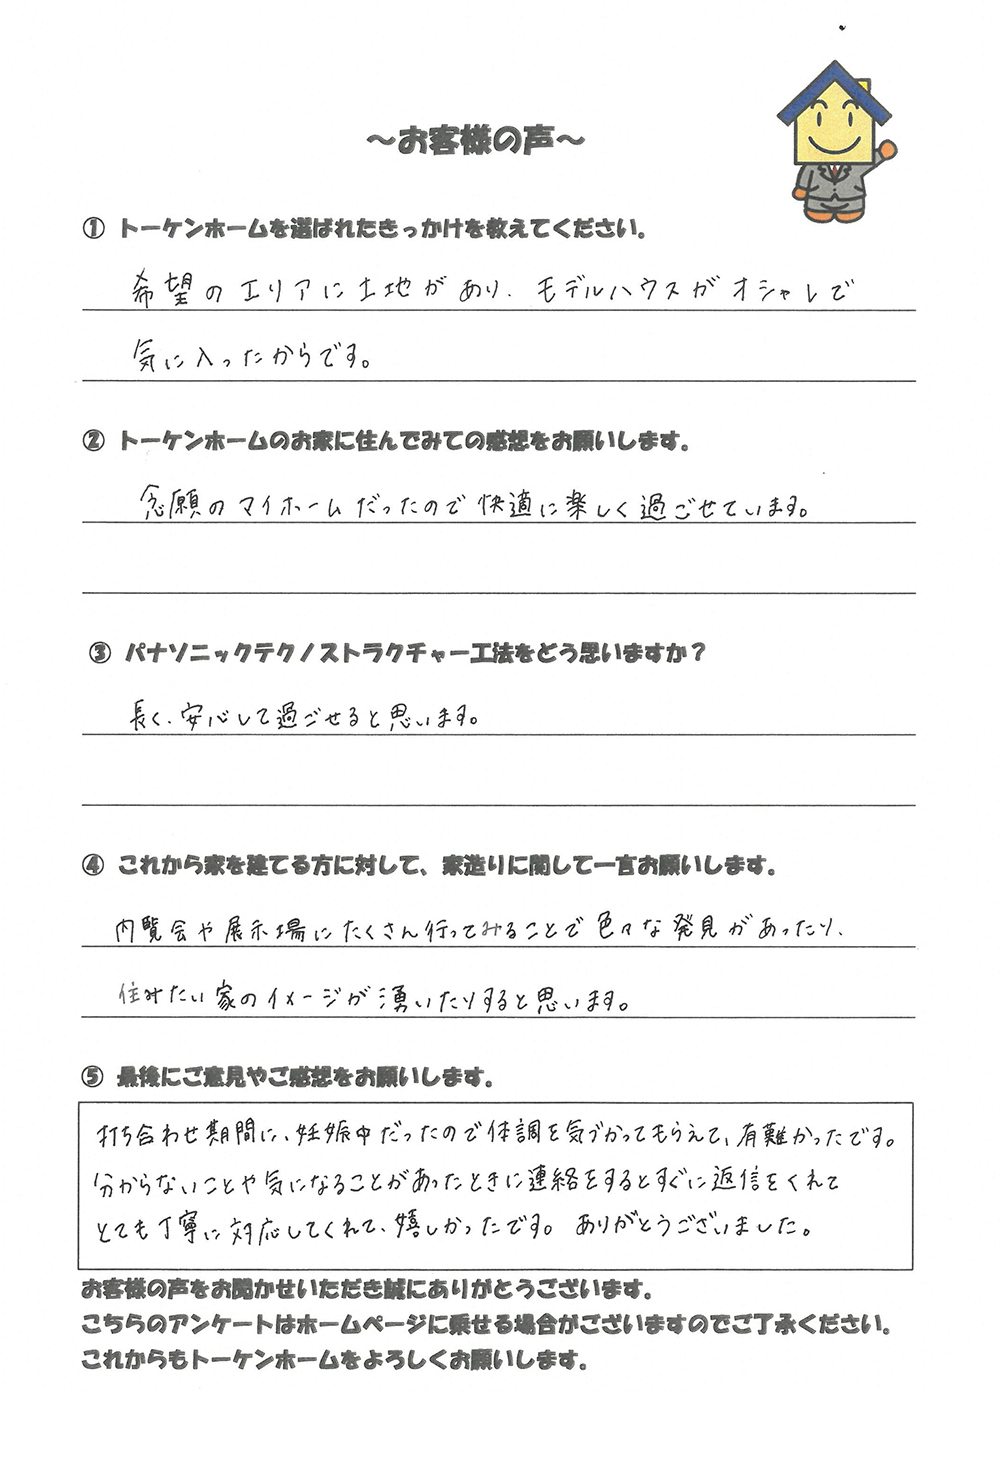 ～お客様の声～
① トーケンホームを選ばれたきっかけを教えてください。
希望のエリアに土地があり、モデルハウスがオシャレで
気に入ったからです。
② トーケンホームのお家に住んでみての感想をお願いします。
念願のマイホームだったので快適に楽しく過ごせています。
③ パナソニックテクノストラクチャー工法をどう思いますか？
長く、安心して過ごせると思います。
④ これから家を建てる方に対して、家造りに関して一言お願いします。
内覧会や展示場にたくさん行ってみることで色々な発見があったり、
住みたい家のイメージが湧いたりすると思います。
⑤ 最後にご意見やご感想をお願いします。
打ち合わせ期間に、妊娠中だったので体調を気づかってもらえて、有難かったです。
分からないことや気になることがあったときに連絡をするとすぐに返信をくれて
とても丁寧に対応してくれて、嬉しかったです。ありがとうございました。
お客様の声をお聞かせいただき誠にありがとうございます。
こちらのアンケートはホームページに乗せる場合がございますのでご了承ください。
これからもトーケンホームをよろしくお願いします。